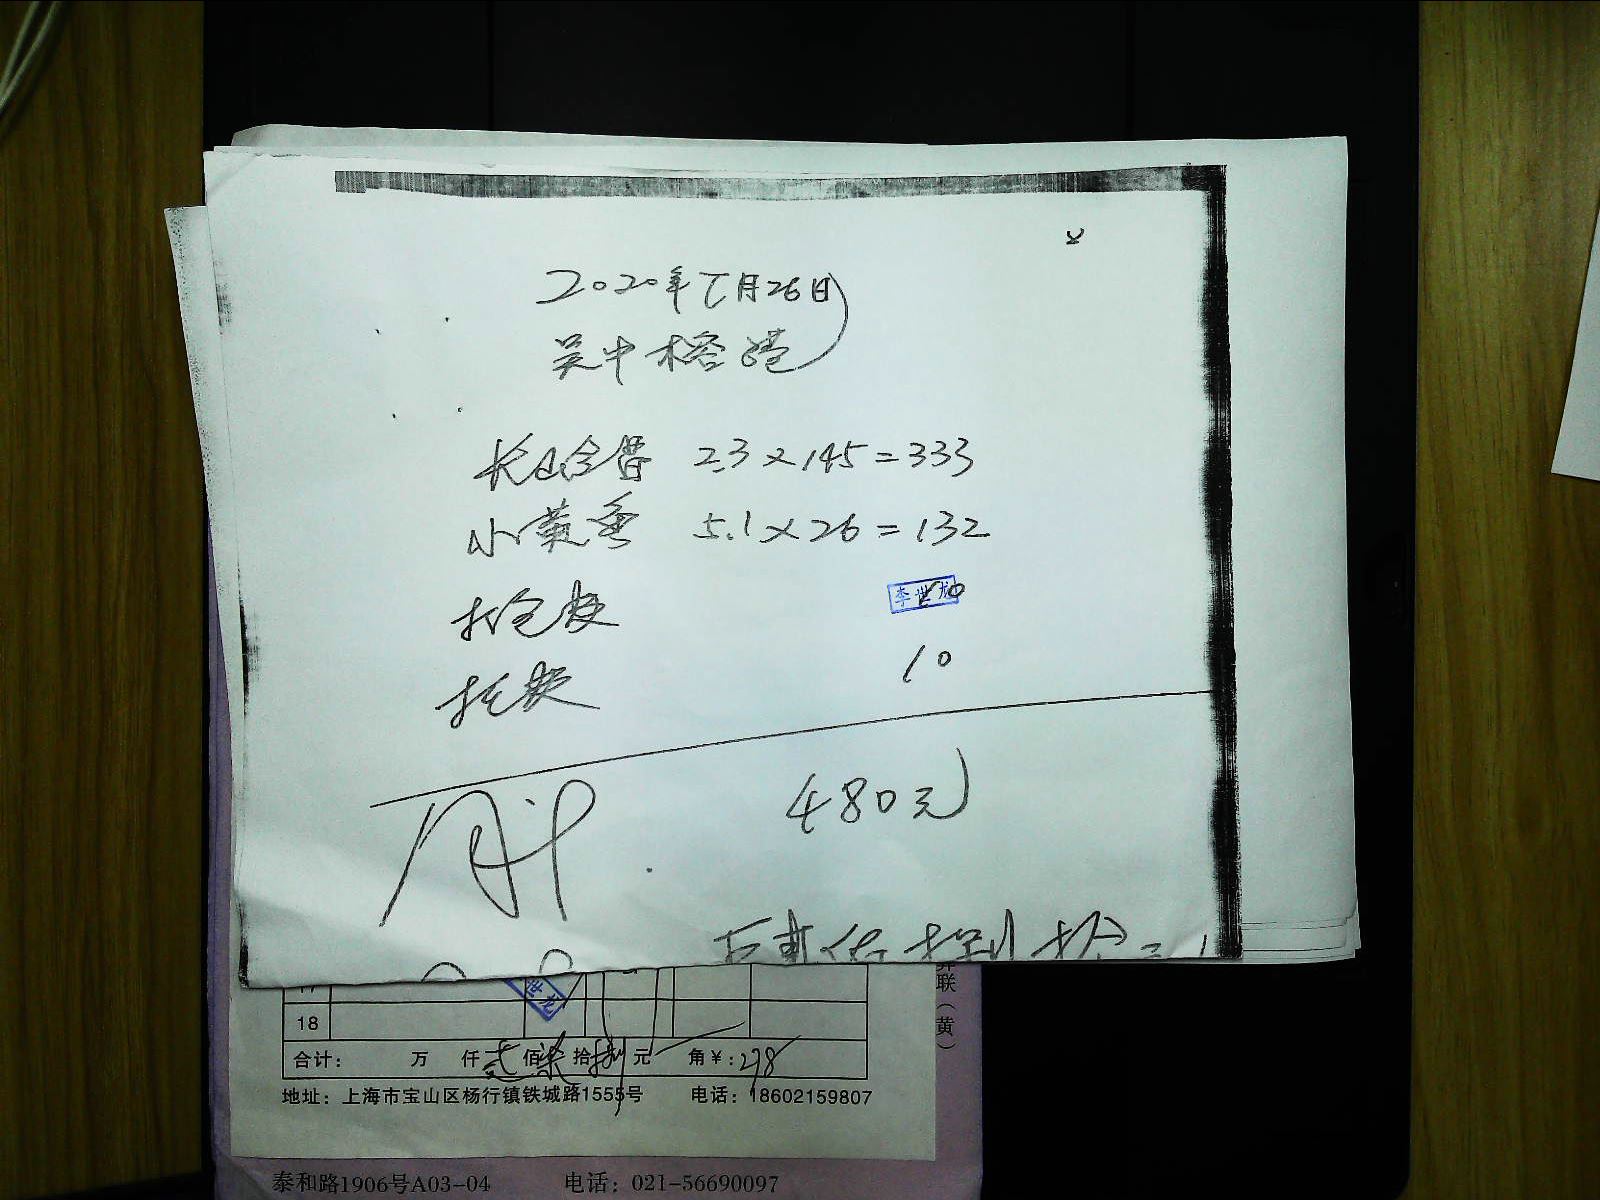 2020年7月26日
吴中榕港
2.3×145=333
小黄鱼 5.1×26=132
打包费
李世龙
托费 10
480元
世龙
18
合计： 万 仟 贰 佰 柒 拾 捌 元 角￥：278
地址：上海市宝山区杨行镇铁城路1555号 电话：18602159807
联（黄）
泰和路1906号A03-04 电话：021-56690097